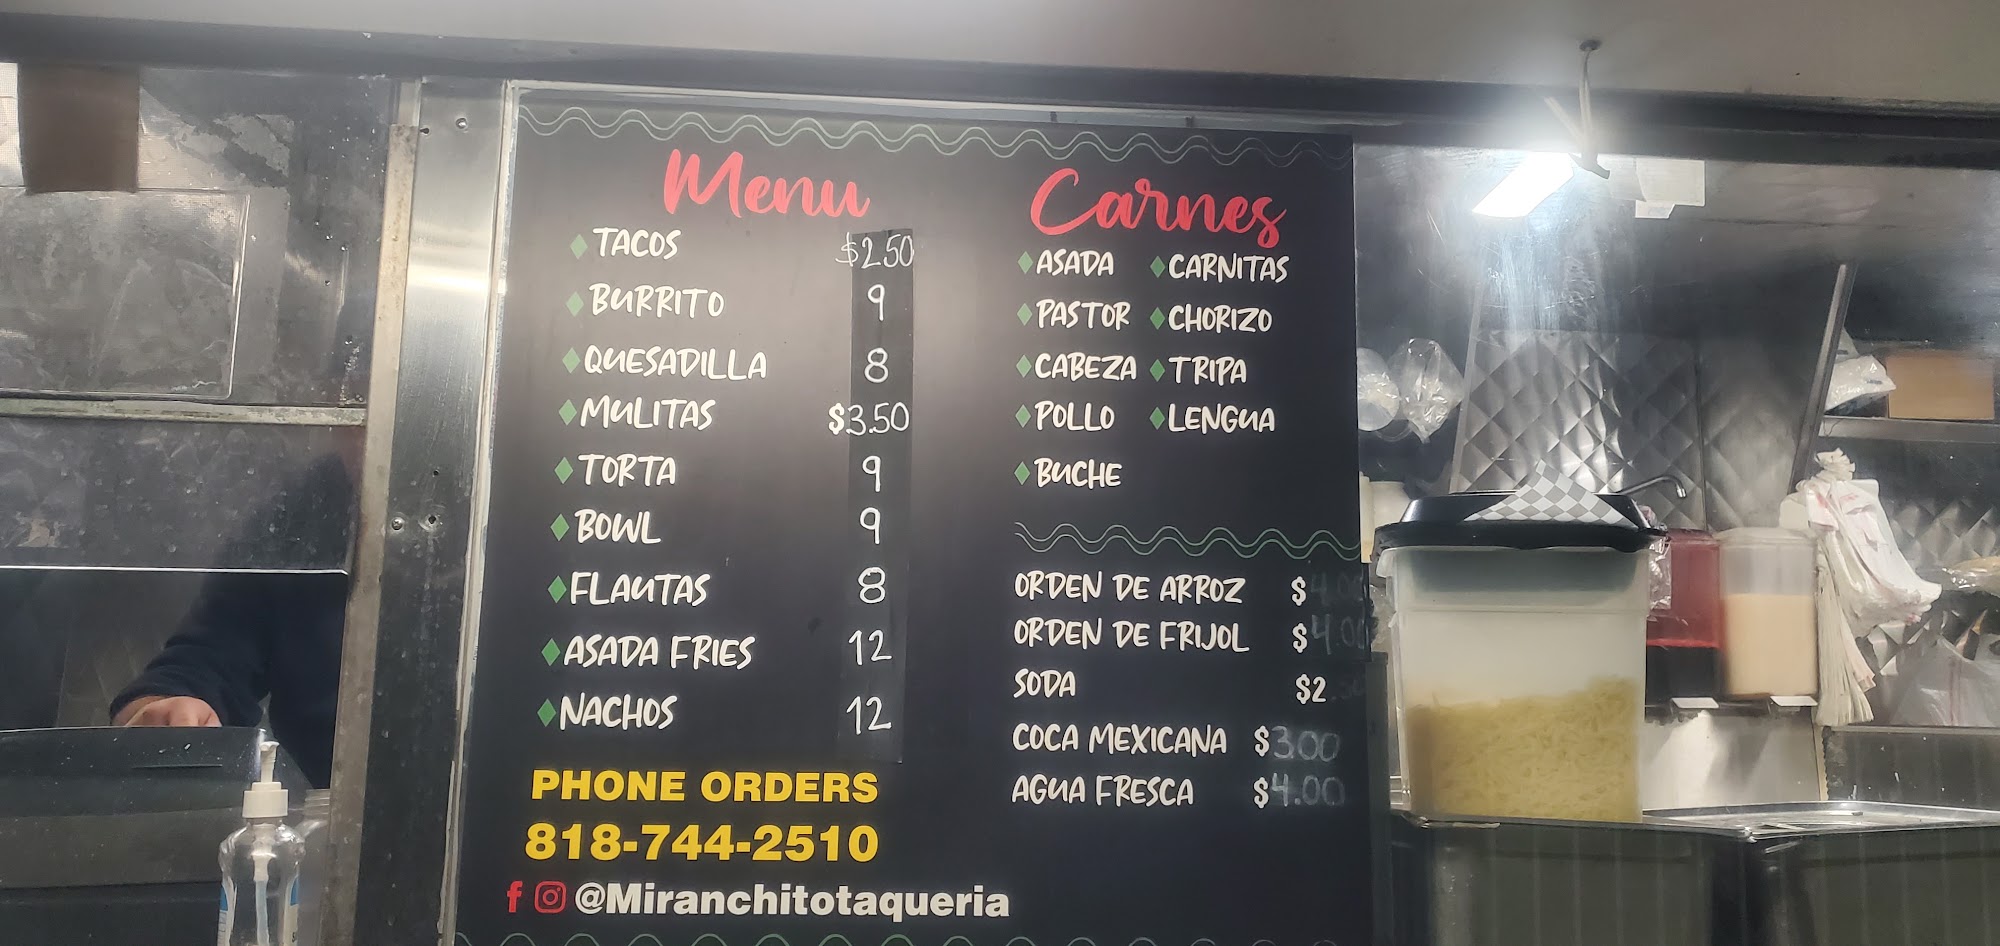 Menu
TACOS $2.50
BURRITO 9
QUESADILLA 8
MULITAS $3.50
TORTA 9
BOWL 9
FLAUTAS 8
ASADA FRIES 12
NACHOS 12
PHONE ORDERS
818-744-2510
@Miranchitotaqueria
Carnes
ASADA CARNITAS
PASTOR CHORIZO
CABEZA TRIPA
POLLO LENGUA
BUCHE
ORDEN DE ARROZ $4.00
ORDEN DE FRIJOL $4.00
SODA $2
COCA MEXICANA $3.00
AGUA FRESCA $4.00